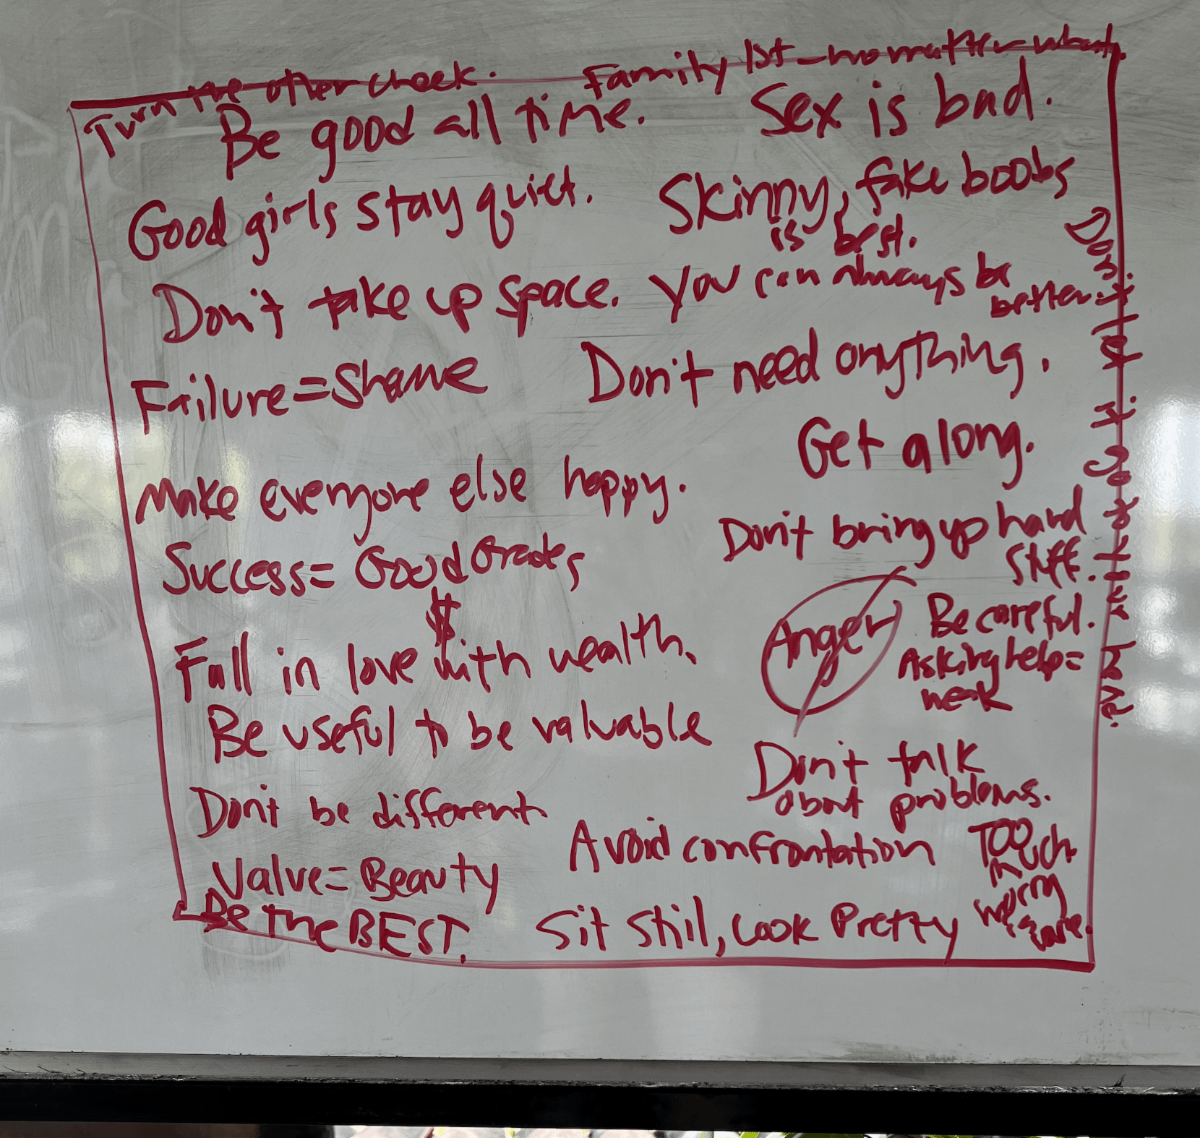 Turn the other cheek.
Family 1st - no matter what.
Be good all time.
Sex is bad.
Good girls stay quiet.
Skinny, fake boobs
is best.
Don't take up space.
You can always be
better.
Failure = Shame
Don't need anything.
Get along.
Make everyone else happy.
Don't bring up hard
stuff.
Success = Good Grades
$
Anger
Be careful.
Asking help =
weak
Fall in love with wealth.
Be useful to be valuable
Don't talk
about problems.
Don't be different.
Avoid confrontation
Too
much
worry
Value = Beauty
Be the BEST.
Sit still, Look Pretty
Don't let it go to your head.